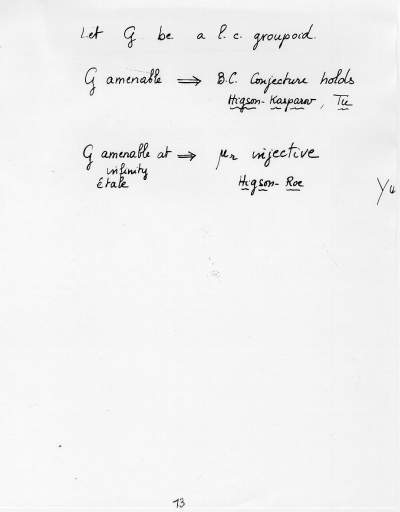 Let G be a l.c. groupoid.
G amenable ⟹ B.C. Conjecture holds
Higson-Kasparov, Tu
G amenable at ⟹ μr injective
infinity
étale Higson-Roe
Yu
13